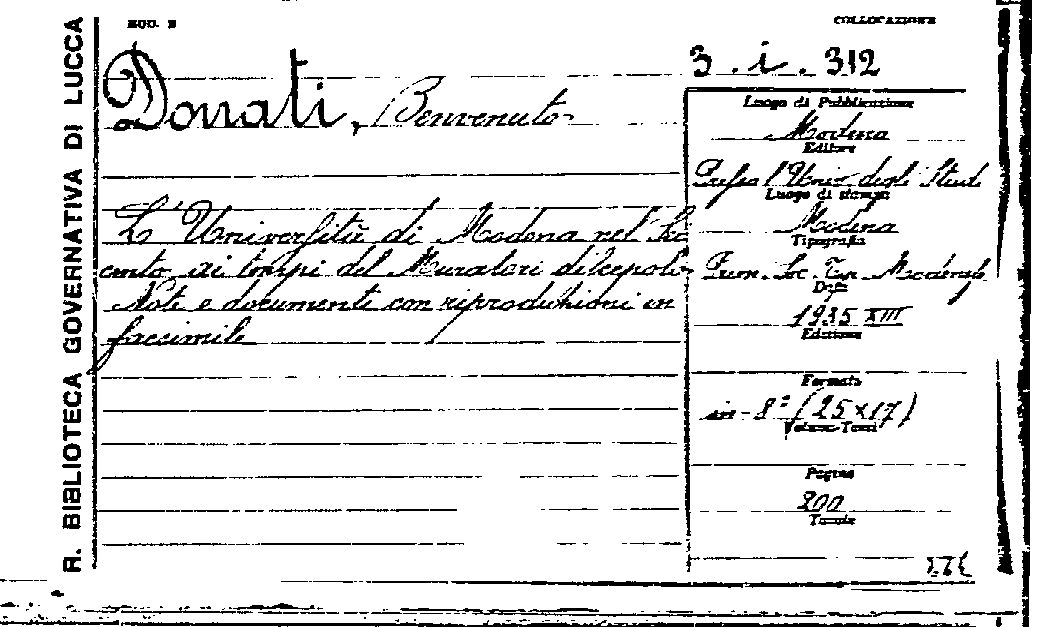 R. BIBLIOTECA GOVERNATIVA DI LUCCA
MOD. B
COLLOCAZIONE
3. i. 312
Donati, Benvenuto
L' Università di Modena nel Set
cento ai tempi del Muratori discepolo
Note e documenti con riproduzioni in
facsimile
Luogo di Pubblicazione
Modena
Editore
Presso l'Univ. degli Studi
Luogo di stampa
Modena
Tipografia
Soc. Tip. Modenese
Data
1935 XIII
Edizione
Formato
in-8° (25x17)
Volume-Tomi
Pagine
200
Tavole